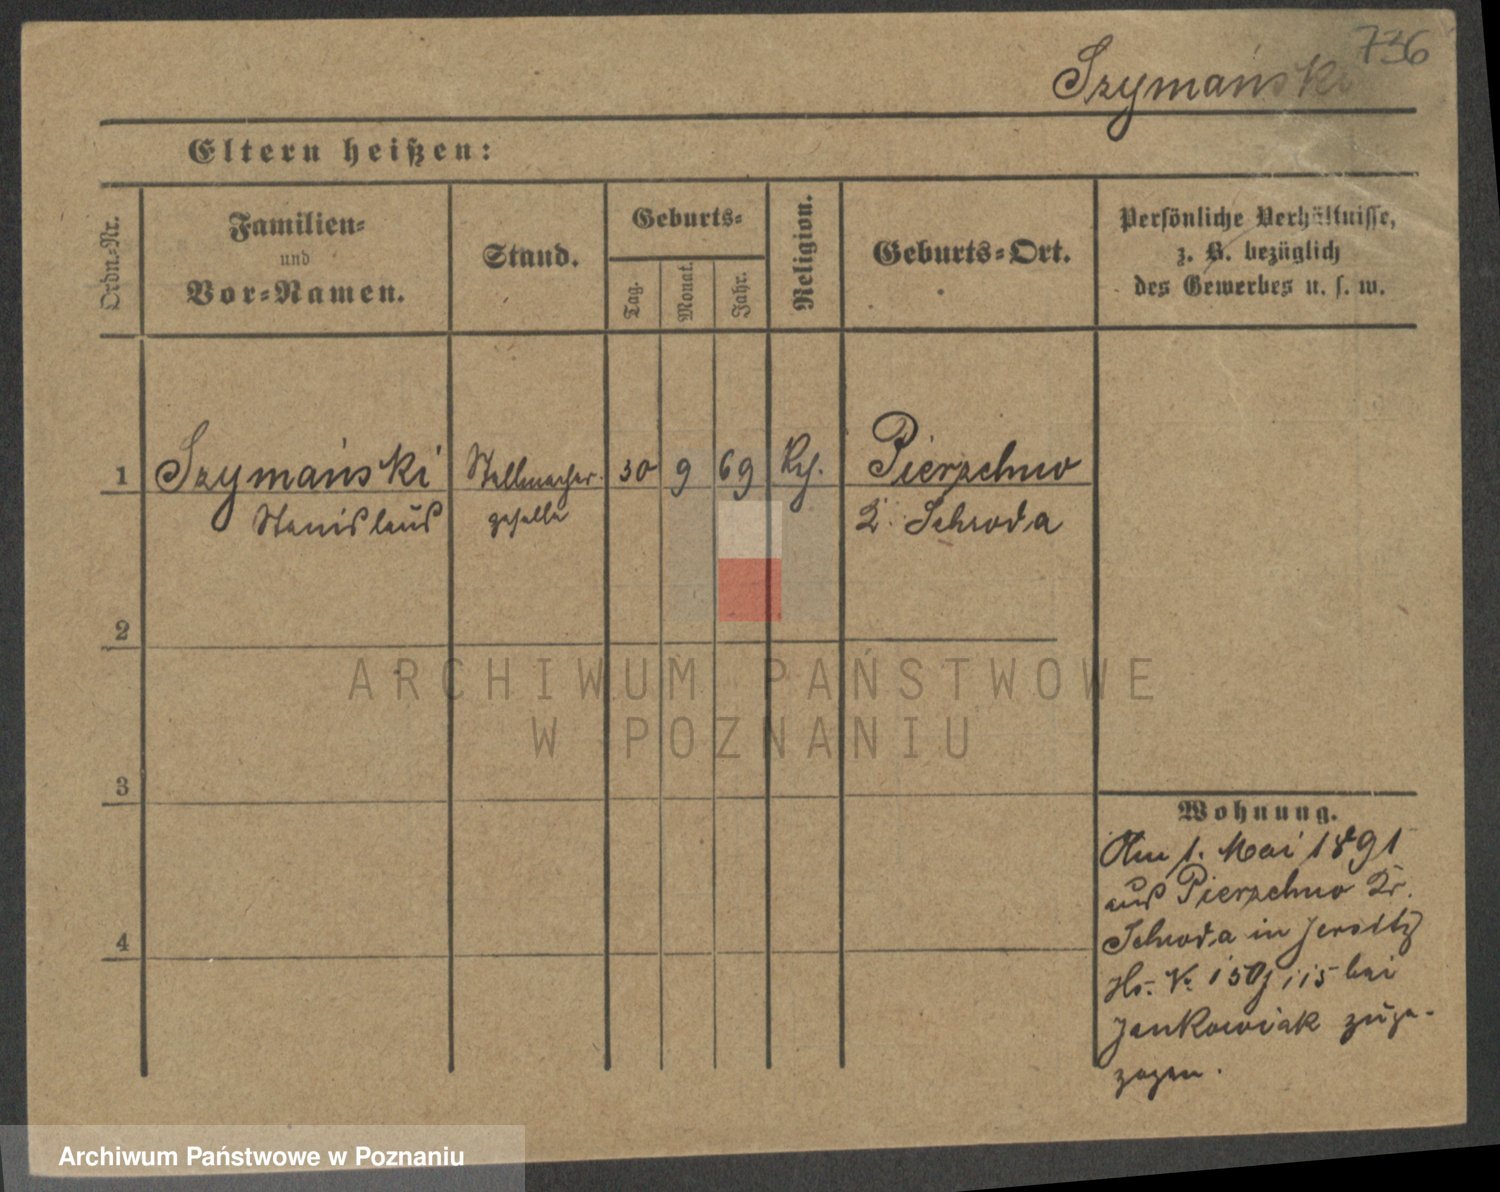 736
Szymański
Eltern heißen:
Ordn.-Nr.
Familien-
und
Vor-Namen.
Stand.
Geburts-
Tag.
Monat.
Jahr.
Religion.
Geburts-Ort.
Persönliche Verhältnisse,
z. B. bezüglich
des Gewerbes u. s. w.
1 Szymański Stellmacher- 30 9 69 Pierzchno
Stanislaus geselle K. Schroda
2
3
4
Wohnung.
Am 1. Mai 1891
aus Pierzchno Kr.
Schroda in Jersitz
bei
Jankowiak zuge-
zogen.
ARCHIWUM PAŃSTWOWE
W POZNANIU
Archiwum Państwowe w Poznaniu